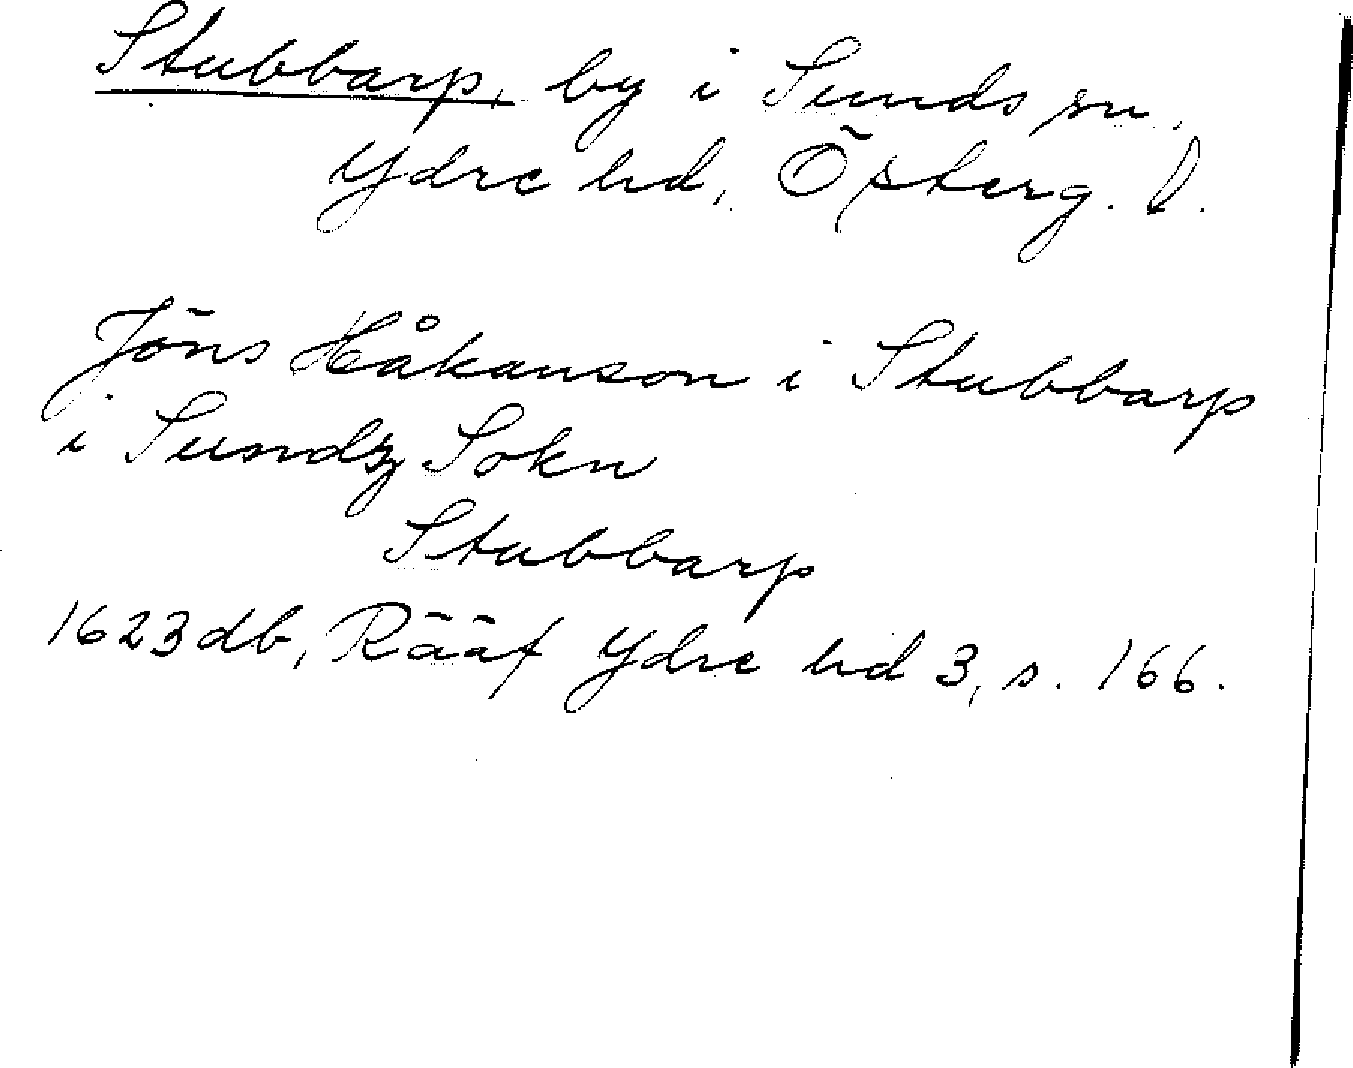 Stubbarp, by i Sunds sn.
Ydre hd, Österg. l.
Jöns Håkanson i Stubbarp
i Sundz Sokn
Stubbarp
1623 db, Rääf Ydre hd 3, s. 166.